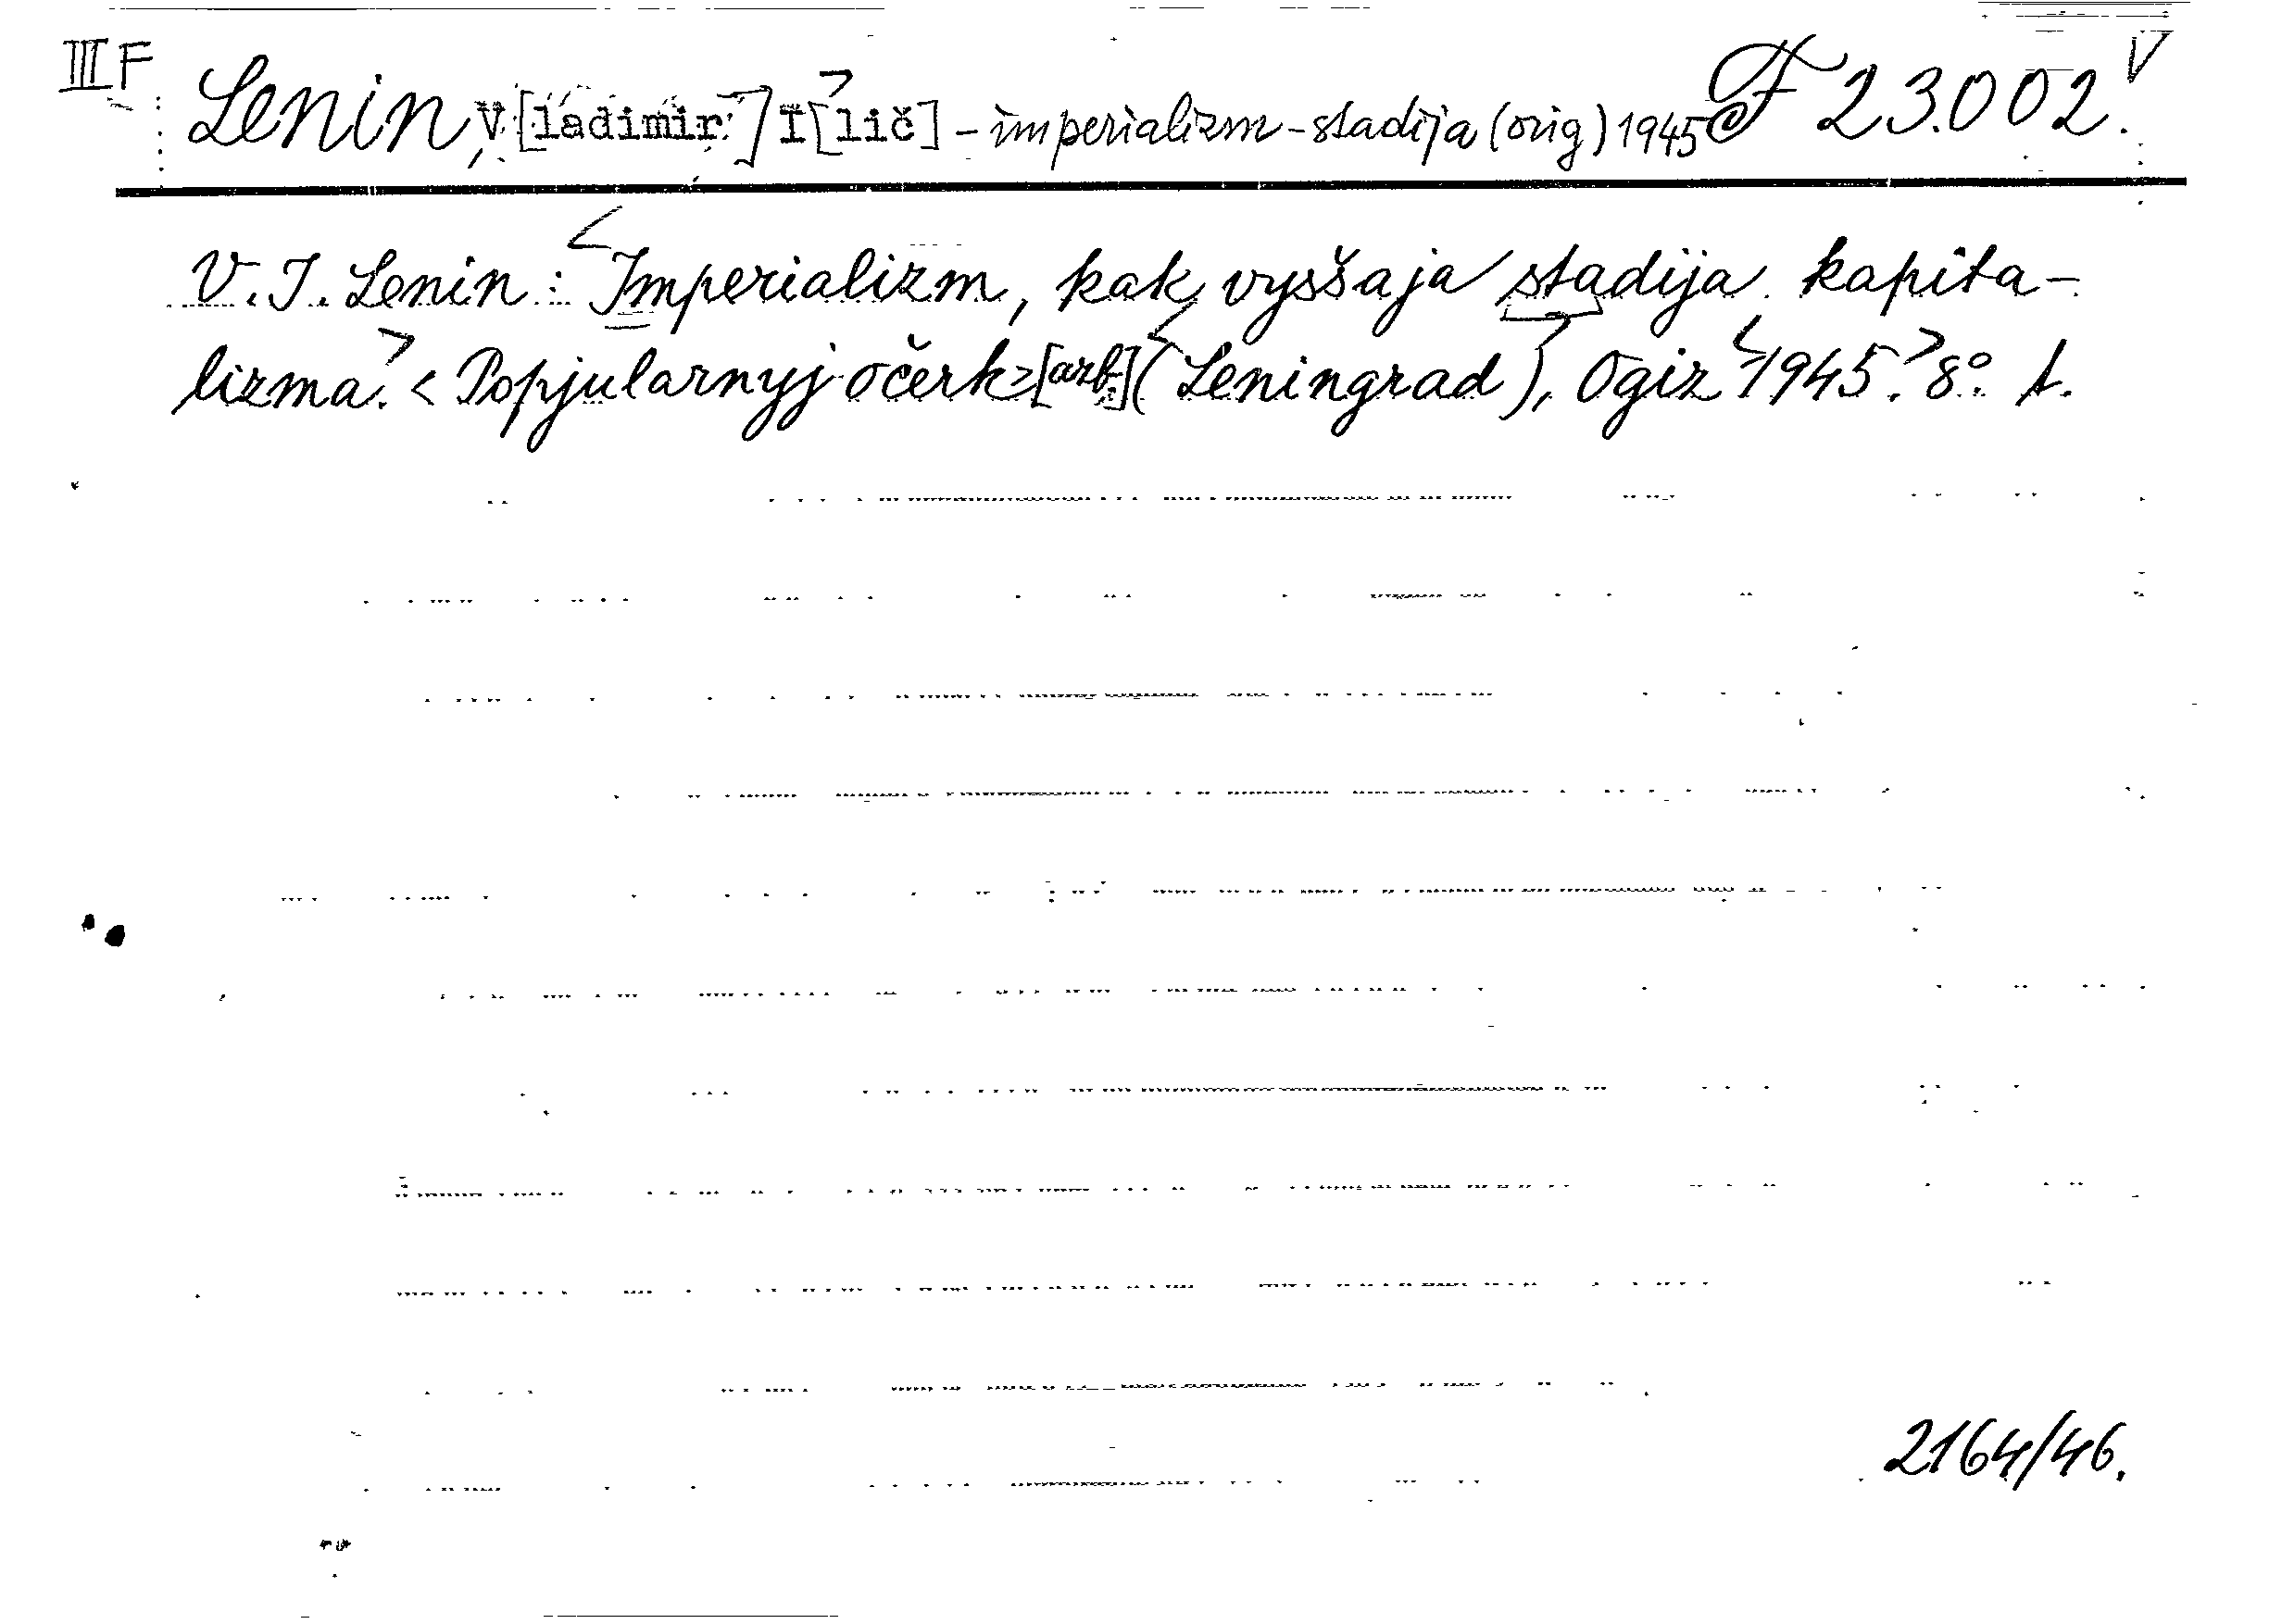 III F Lenin, V[ladimir] I[lič] - imperializm - stadija (orig) 1945 F 23.002. V
V. I. Lenin: Imperializm, kak vysšaja stadija kapita-
lizma. < Popjularnyj očerk > [azb.] (Leningrad), Ogiz 1945. 8°. 1.
2164/46.